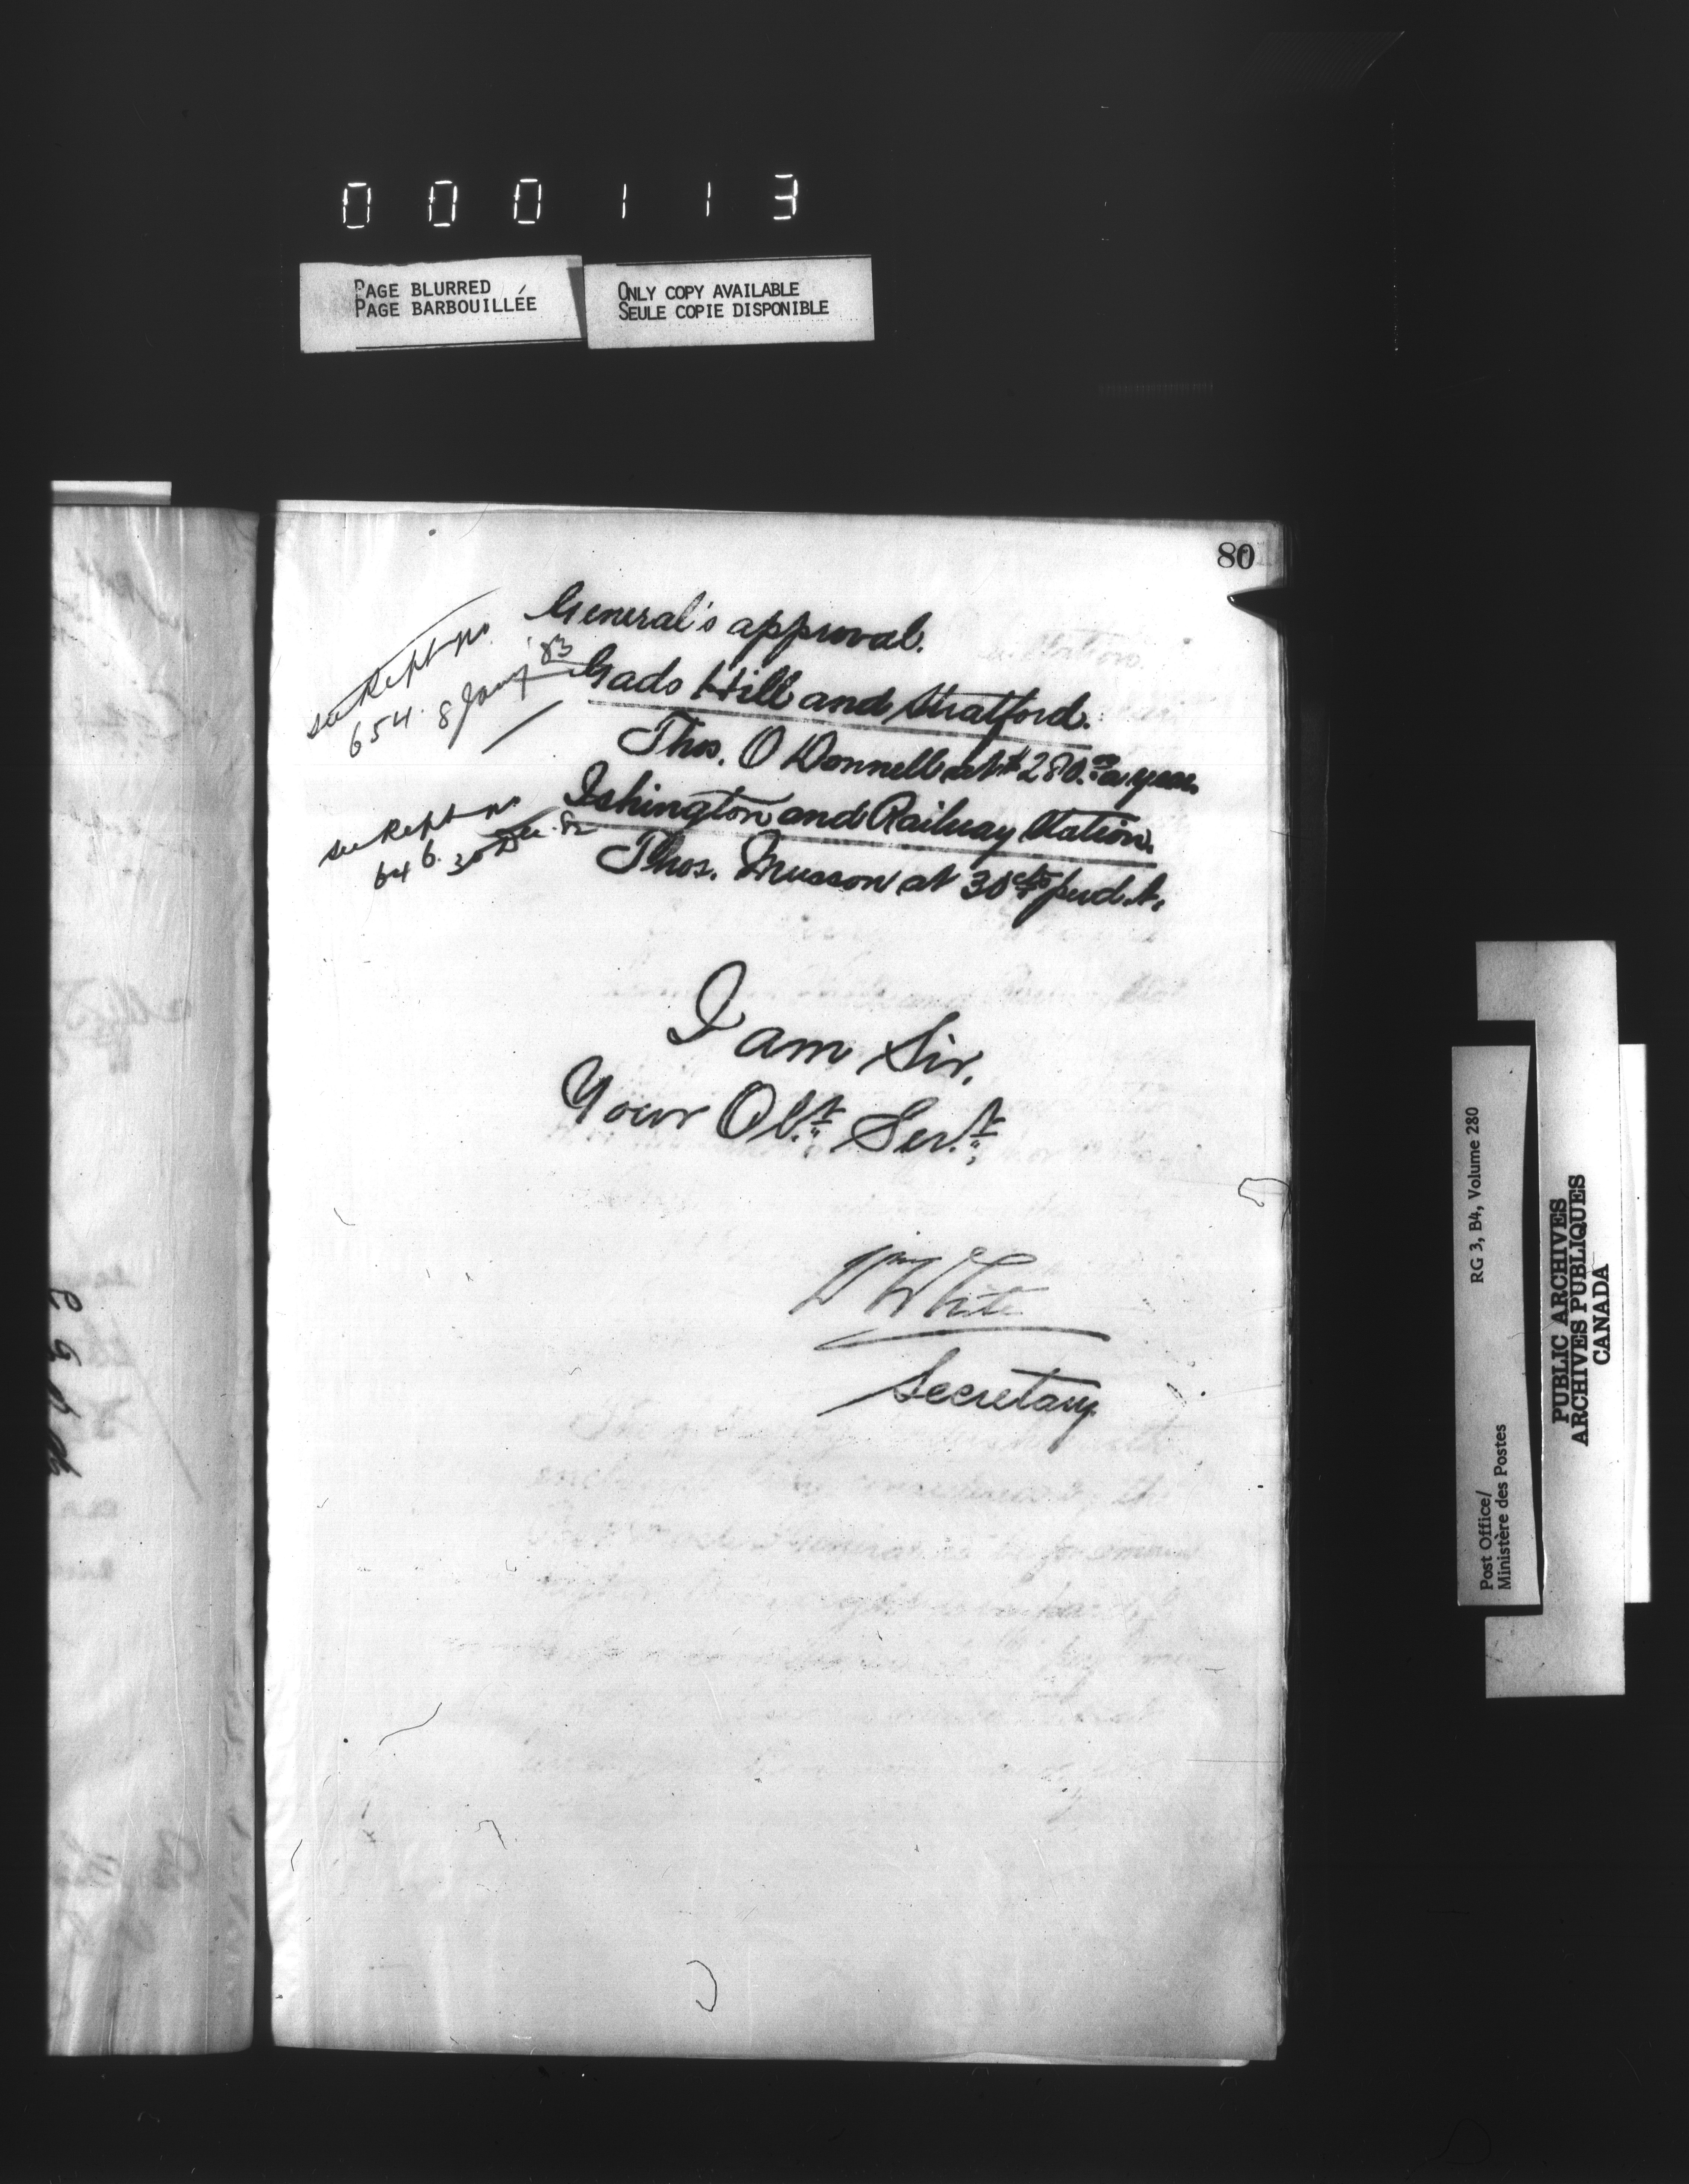 000113
PAGE BLURRED
PAGE BARBOUILLÉE
ONLY COPY AVAILABLE
SEULE COPIE DISPONIBLE
80
General's approval.
see Rept no
654. 8 Jany '83
Gads Hill and Stratford.
Thos. O Donnell at $280.00 a year.
see Rept no
646. 30 Dec. 82
Ishington and Railway Station.
Thos. Musson at 30 cts per d.t.
I am Sir,
Your Obt. Servt.,
Wm White
Secretary
RG 3, B4, Volume 280
Post Office/
Ministère des Postes
PUBLIC ARCHIVES
ARCHIVES PUBLIQUES
CANADA